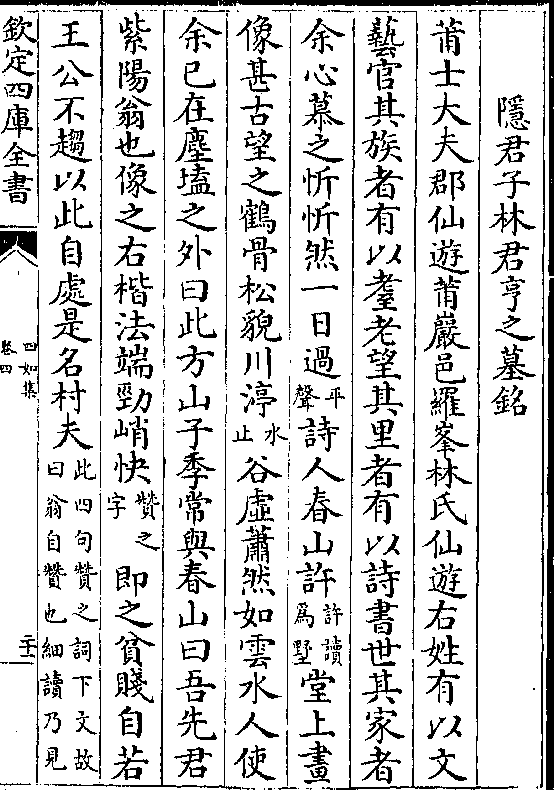 隱君子林君亨之墓銘
莆士大夫郡仙遊莆巖邑羅峯林氏仙遊右姓有以文
藝官其族者有以耆老望其里者有以詩書世其家者
余心慕之忻忻然一日過平聲詩人春山許許讀為墅堂上畫
像甚古望之鶴骨松貌川渟水止谷虛蕭然如雲水人使
余已在塵壒之外曰此方山子季常與春山曰吾先君
紫陽翁也像之右楷法端勁峭快贊之字即之貧賤自若
王公不趨以此自處是名村夫此四句贊之詞下文故曰翁自贊也細讀乃見
欽定四庫全書
四如集
卷四
二十